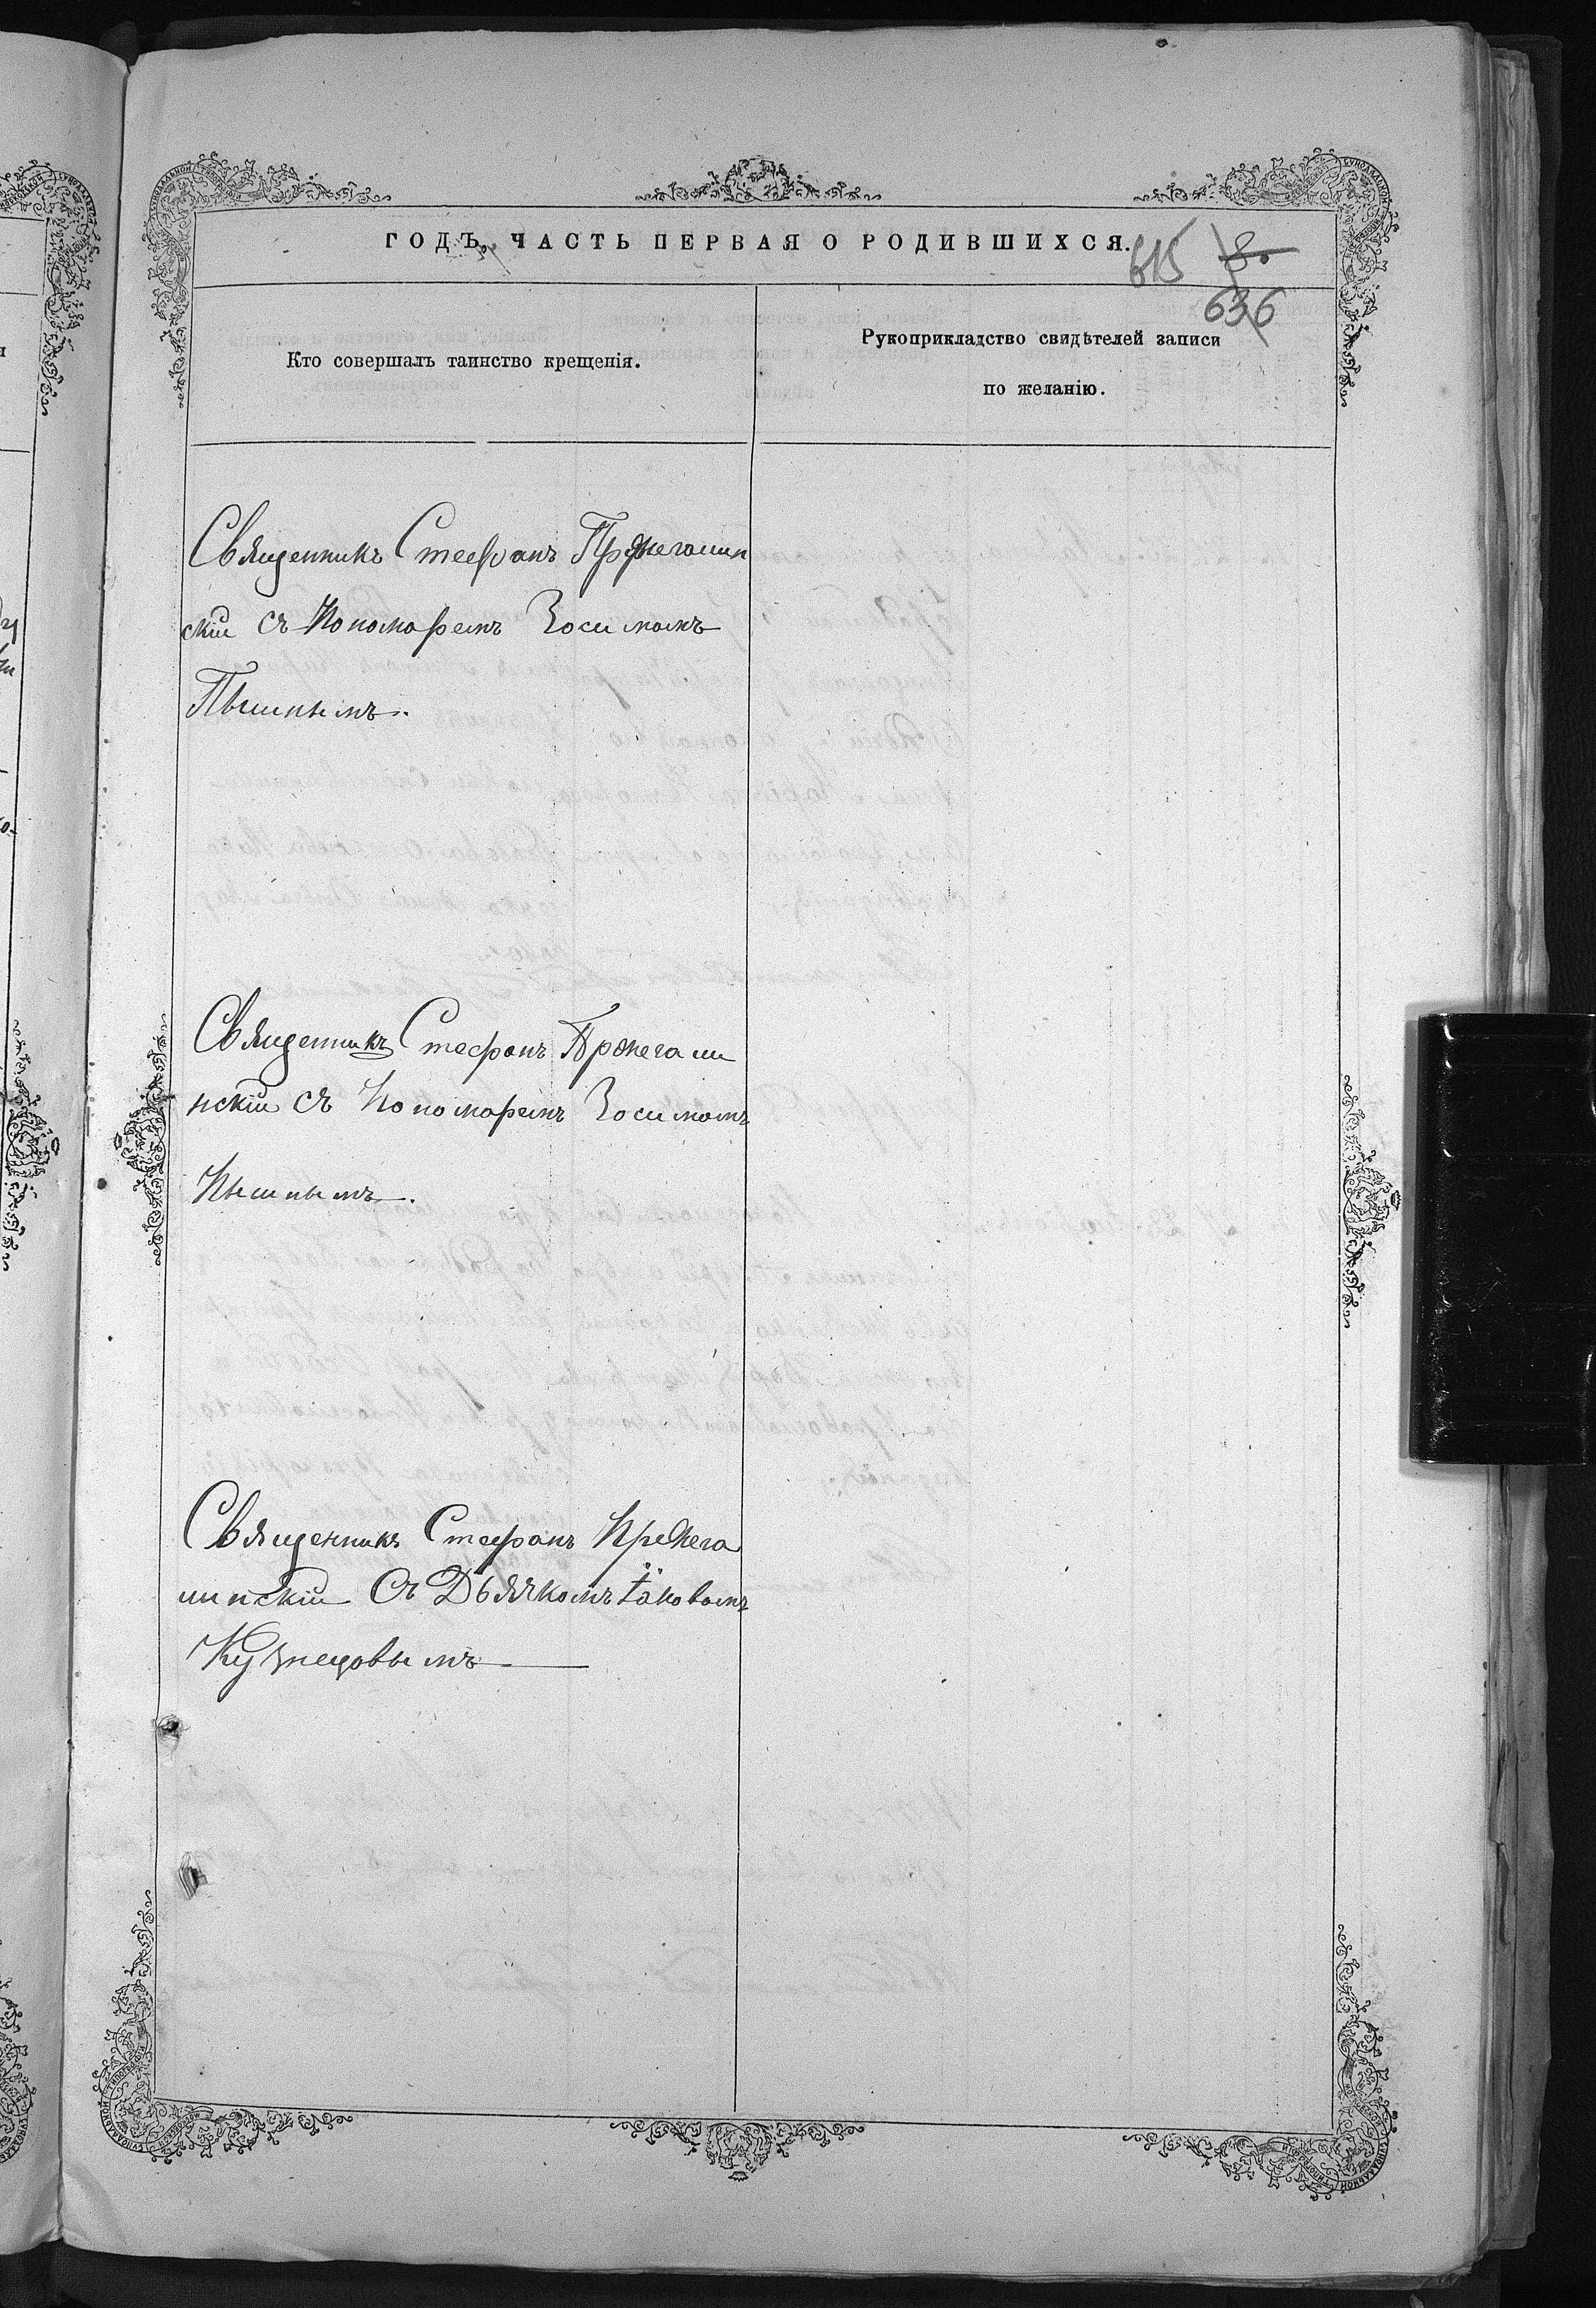 ГОДЪ, ЧАСТЬ ПЕРВАЯ О РОДИВШИХСЯ.
615 8.
636
Кто совершалъ таинство крещенія.
Рукоприкладство свидѣтелей записи
по желанію.
Священникъ Стефанъ Пржегалин
скій съ Пономаремъ Зосимомъ
Пышнымъ.
Священникъ Стефанъ Пржегали
нскій съ Пономаремъ Зосимомъ
Пышнымъ.
Священникъ Стефанъ Пржега
линскій съ Дьячкомъ Іаковомъ
Кузнецовымъ